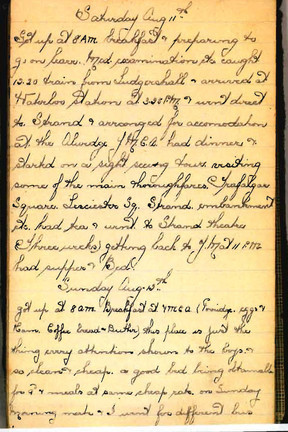 Saturday Aug 11th
Got up at 8 AM. breakfast & preparing to
go on leave. Med examination etc caught
12.20 train from Ludgershall & arrived at
Waterloo station at 3.30 P.M. & went direct
to Strand & arranged for accomodation
at the Aldwych Y.M.C.A. had dinner &
started on a sight seeing tour. visiting
some of the main thoroughfares, Trafalgar
Square Leicester Sq. Strand. embankment
etc. had tea & went to Strand theatre
getting back to Y.M at 11 P.M.
had supper & Bed.
Sunday Aug 12th
got up at 8 am. Breakfast at YMCA (Porridge eggs &
Ham. Coffee Bread & Butter) this place is just the
thing every attention shown to the boys &
so clean & cheap. a good bed being obtainable
for & meals at same cheap rate. on Sunday
morning & I went for different